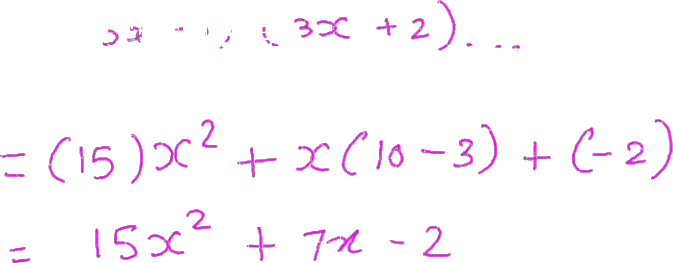 (3x + 2)...
= (15)x² + x(10 - 3) + (-2)
= 15x² + 7x - 2